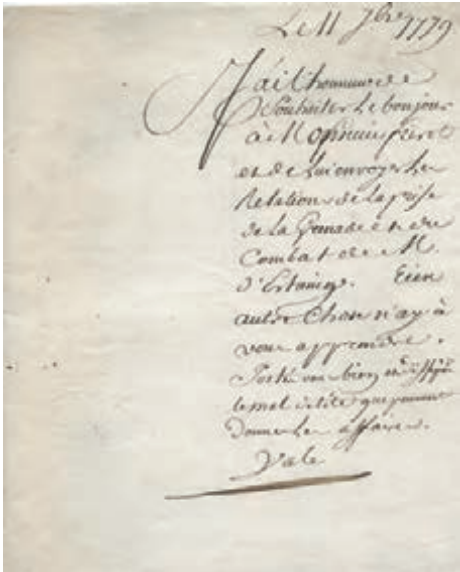 Le 11 7bre 1779
J'ai l'honneur de
Souhaiter le bonjour
à M
et de lui envoyer les
Relations de la prise
de la Grenade et du
Combat de M.
d'Estaing. Rien
autre Chose n'ay à
vous apprendre.
Portés vous bien
le mal de tête que peuvent
Donner les affaires.
Vale